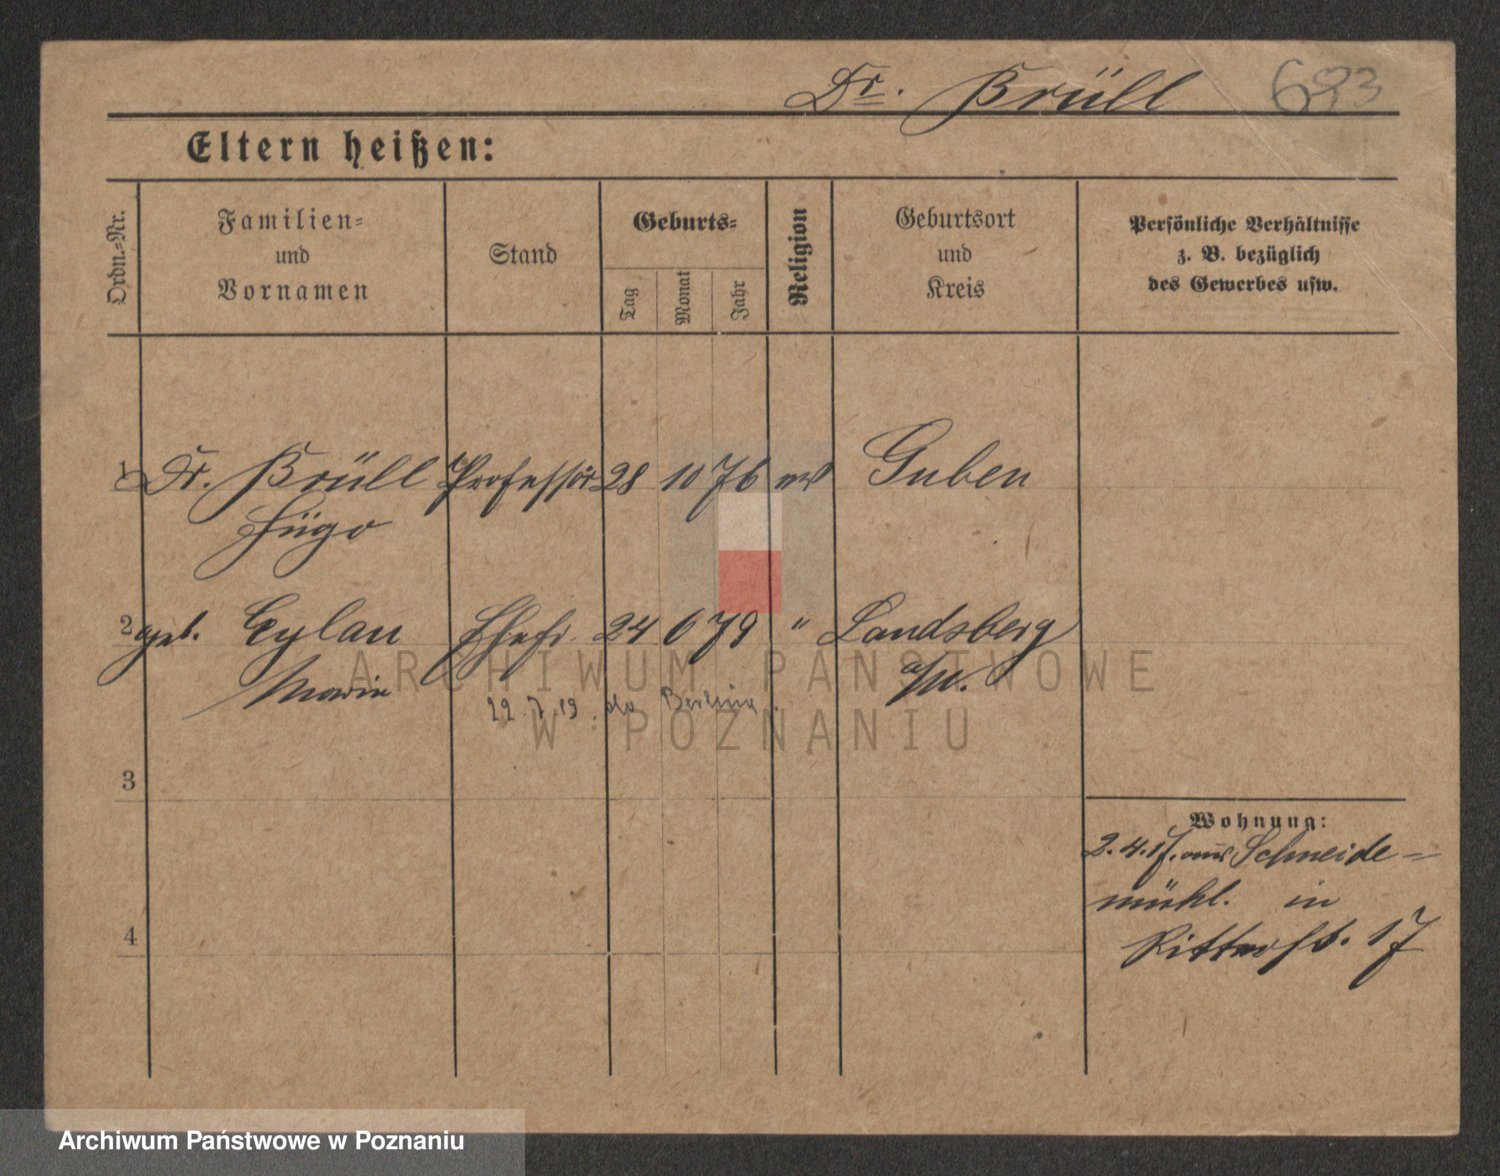 Dr. Brüll 693
Eltern heißen:
Ordn.-Nr.
Familien-
und
Vornamen
Stand
Geburts-
Tag
Monat
Jahr
Religion
Geburtsort
und
Kreis
Persönliche Verhältnisse
z. B. bezüglich
des Gewerbes usw.
1 Dr. Brüll Professor 28 10 76 ev Guben
Hügo
2 geb. Eylau Ehefr. 24 6 79 " Landsberg
Marie a/W.
22.7.19. do Berlina.
ARCHIWUM PAŃSTWOWE
W POZNANIU
3
4
Wohnung:
2.4.17. aus Schneide-
mühl. in
Ritterst. 17
Archiwum Państwowe w Poznaniu